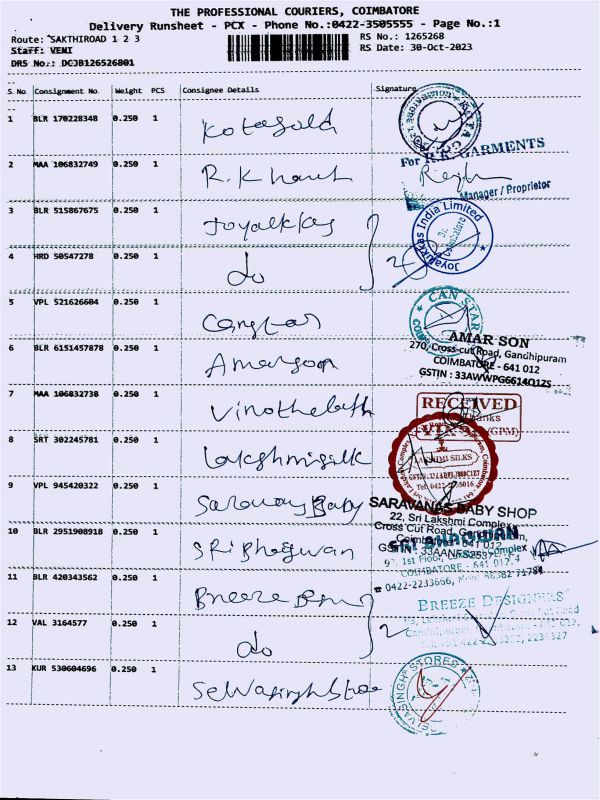 THE PROFESSIONAL COURIERS, COIMBATORE
Delivery Runsheet - PCX - Phone No.:0422-3505555 - Page No.:1
Route: SAKTHIROAD 1 2 3 RS No.: 1265268
Staff: VENI RS Date: 30-Oct-2023
DRS No.: DCJB126526801
S No Consignment No Weight PCS Consignee Details Signature
1 BLR 170228348 0.250 1
For R.K. GARMENTS
2 MAA 106832749 0.250 1 R.Khanna
Manager / Proprietor
3 BLR 515867675 0.250 1 Joyalkkas Joyalukkas India Limited
4 HRD 50547278 0.250 1 do 2
5 VPL 521626604 0.250 1 CAN STAR
AMAR SON
270, Cross-cut Road, Gandhipuram
COIMBATORE - 641 012
GSTIN : 33AWWPG6614Q1ZS
6 BLR 6151457878 0.250 1 Amarson
7 MAA 106832738 0.250 1 RECEIVED
(GPM)
8 SRT 302245781 0.250 1 Lakshmisilk LAKSHMI SILKS
9 VPL 945420322 0.250 1 Saravanas Baby SARAVANAS BABY SHOP
22, Sri Lakshmi Complex
Cross Cut Road, Gandhipuram,
Coimbatore - 641 012
10 BLR 2951908918 0.250 1 SRi Bhagwan SRI BHAGWAN
COIMBATORE - 641 012
0422-2233666,
11 BLR 420343562 0.250 1 Breeze BREEZE DESIGNERS
12 VAL 3164577 0.250 1 do 2
13 KUR 530604696 0.250 1 Selvasingh Store SELVASINGH STORES